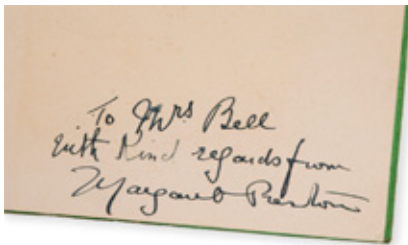 To Mrs Bell
with kind regards from
Margaret Preston